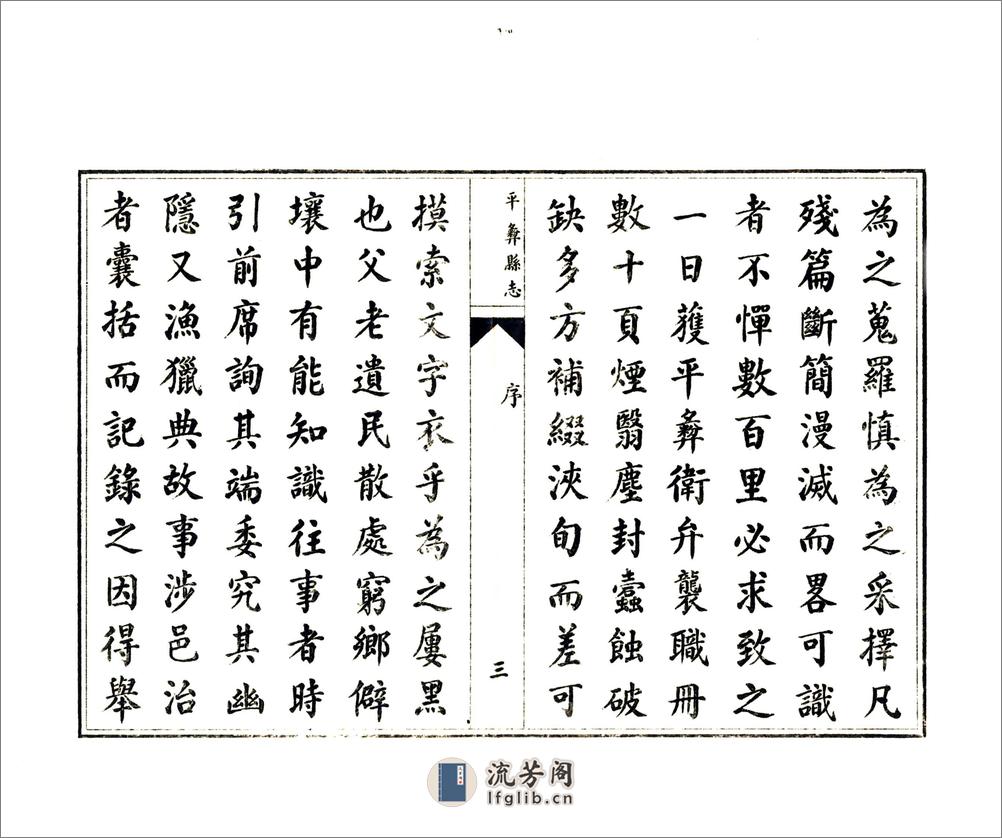 為之蒐羅慎為之采擇凡
殘篇斷簡漫滅而畧可識
者不憚數百里必求致之
一日獲平彝衛弁襲職冊
數十頁煙翳塵封蠹蝕破
缺多方補綴浹旬而差可
平彝縣志
序
三
摸索文字衣乎為之屢黑
也父老遺民散處窮鄉僻
壤中有能知識往事者時
引前席詢其端委究其幽
隱又漁獵典故事涉邑治
者囊括而記錄之因得舉
流芳阁
lfglib.cn